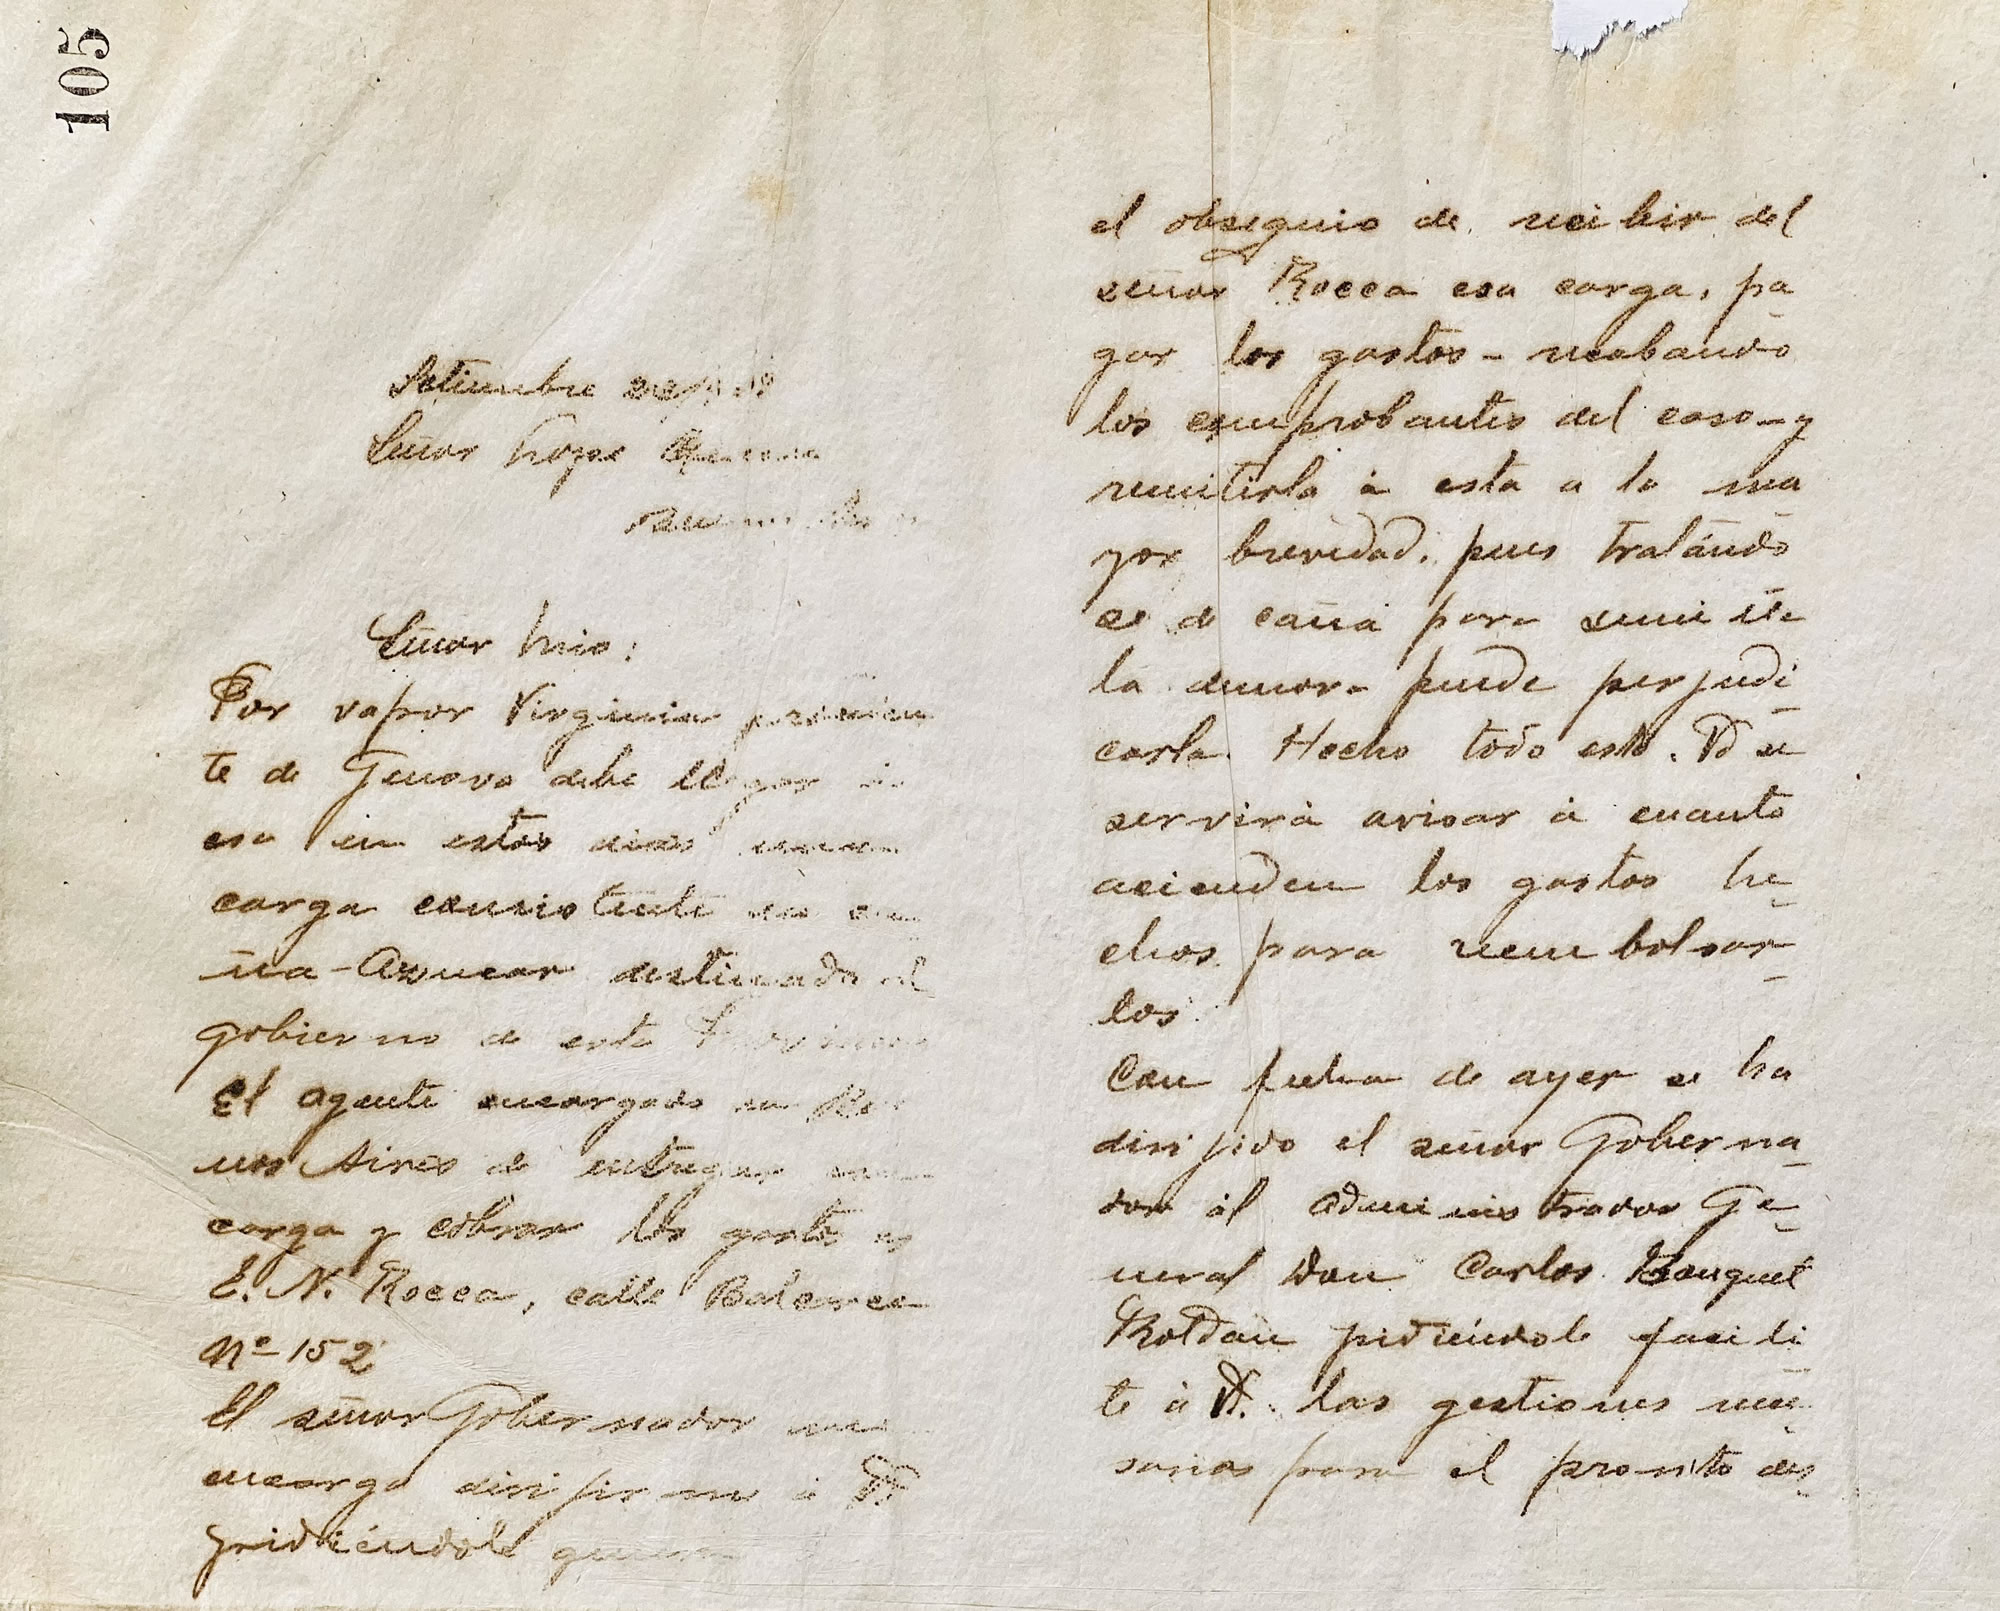 105
Setiembre
Señor
Señor mio:
Por vapor Virginia procedén
te de Genova debe llegar á
esa en estos dias una
carga consistente en ca
ña-Azucar destinada al
gobierno de esta Provincia
El agente encargado en Bue
nos Aires de entregar esa
carga y cobrar los gastos es
E. N. Rocca, calle Balcarce
Nº 152
El señor Gobernador me
encarga dirijirme á Vd
pidiéndole quiera
el obsequio de recibir del
señor Rocca esa carga, pa_
gar los gastos - recabando
los comprobantes del caso - y
remitirla á esta a la ma_
yor brevedad, pues tratándo
se de caña para semilla
la demora puede perjudi_
carla. Hecho todo esto. Vd se
servirá avisar á cuanto
acienden los gastos he_
chos para reembolsar_
los.
Con fecha de ayer se ha
dirijido el señor Goberna_
dor al Administrador Ge_
neral Don Carlos Bouquet
Roldan pidiéndole facili_
te á Vd. las gestiones nece_
sarias para el pronto des_